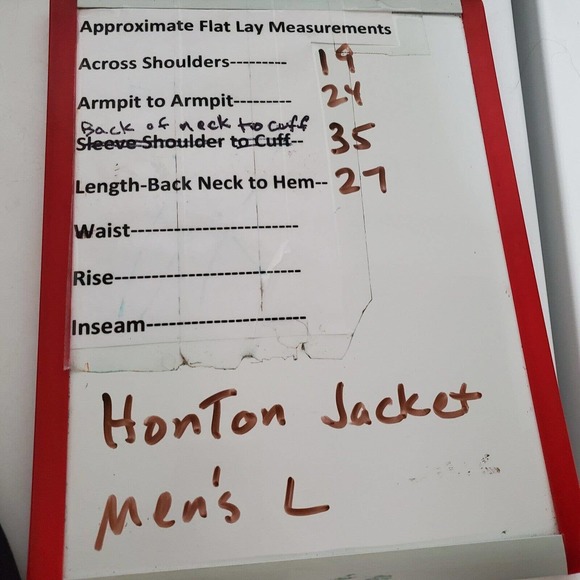 Approximate Flat Lay Measurements
Across Shoulders--------- 19
Armpit to Armpit--------- 24
Back of neck to cuff
Sleeve Shoulder to Cuff-- 35
Length-Back Neck to Hem-- 27
Waist--------------------------
Rise-----------------------------
Inseam-------------------------
HonTon Jacket
Men's L